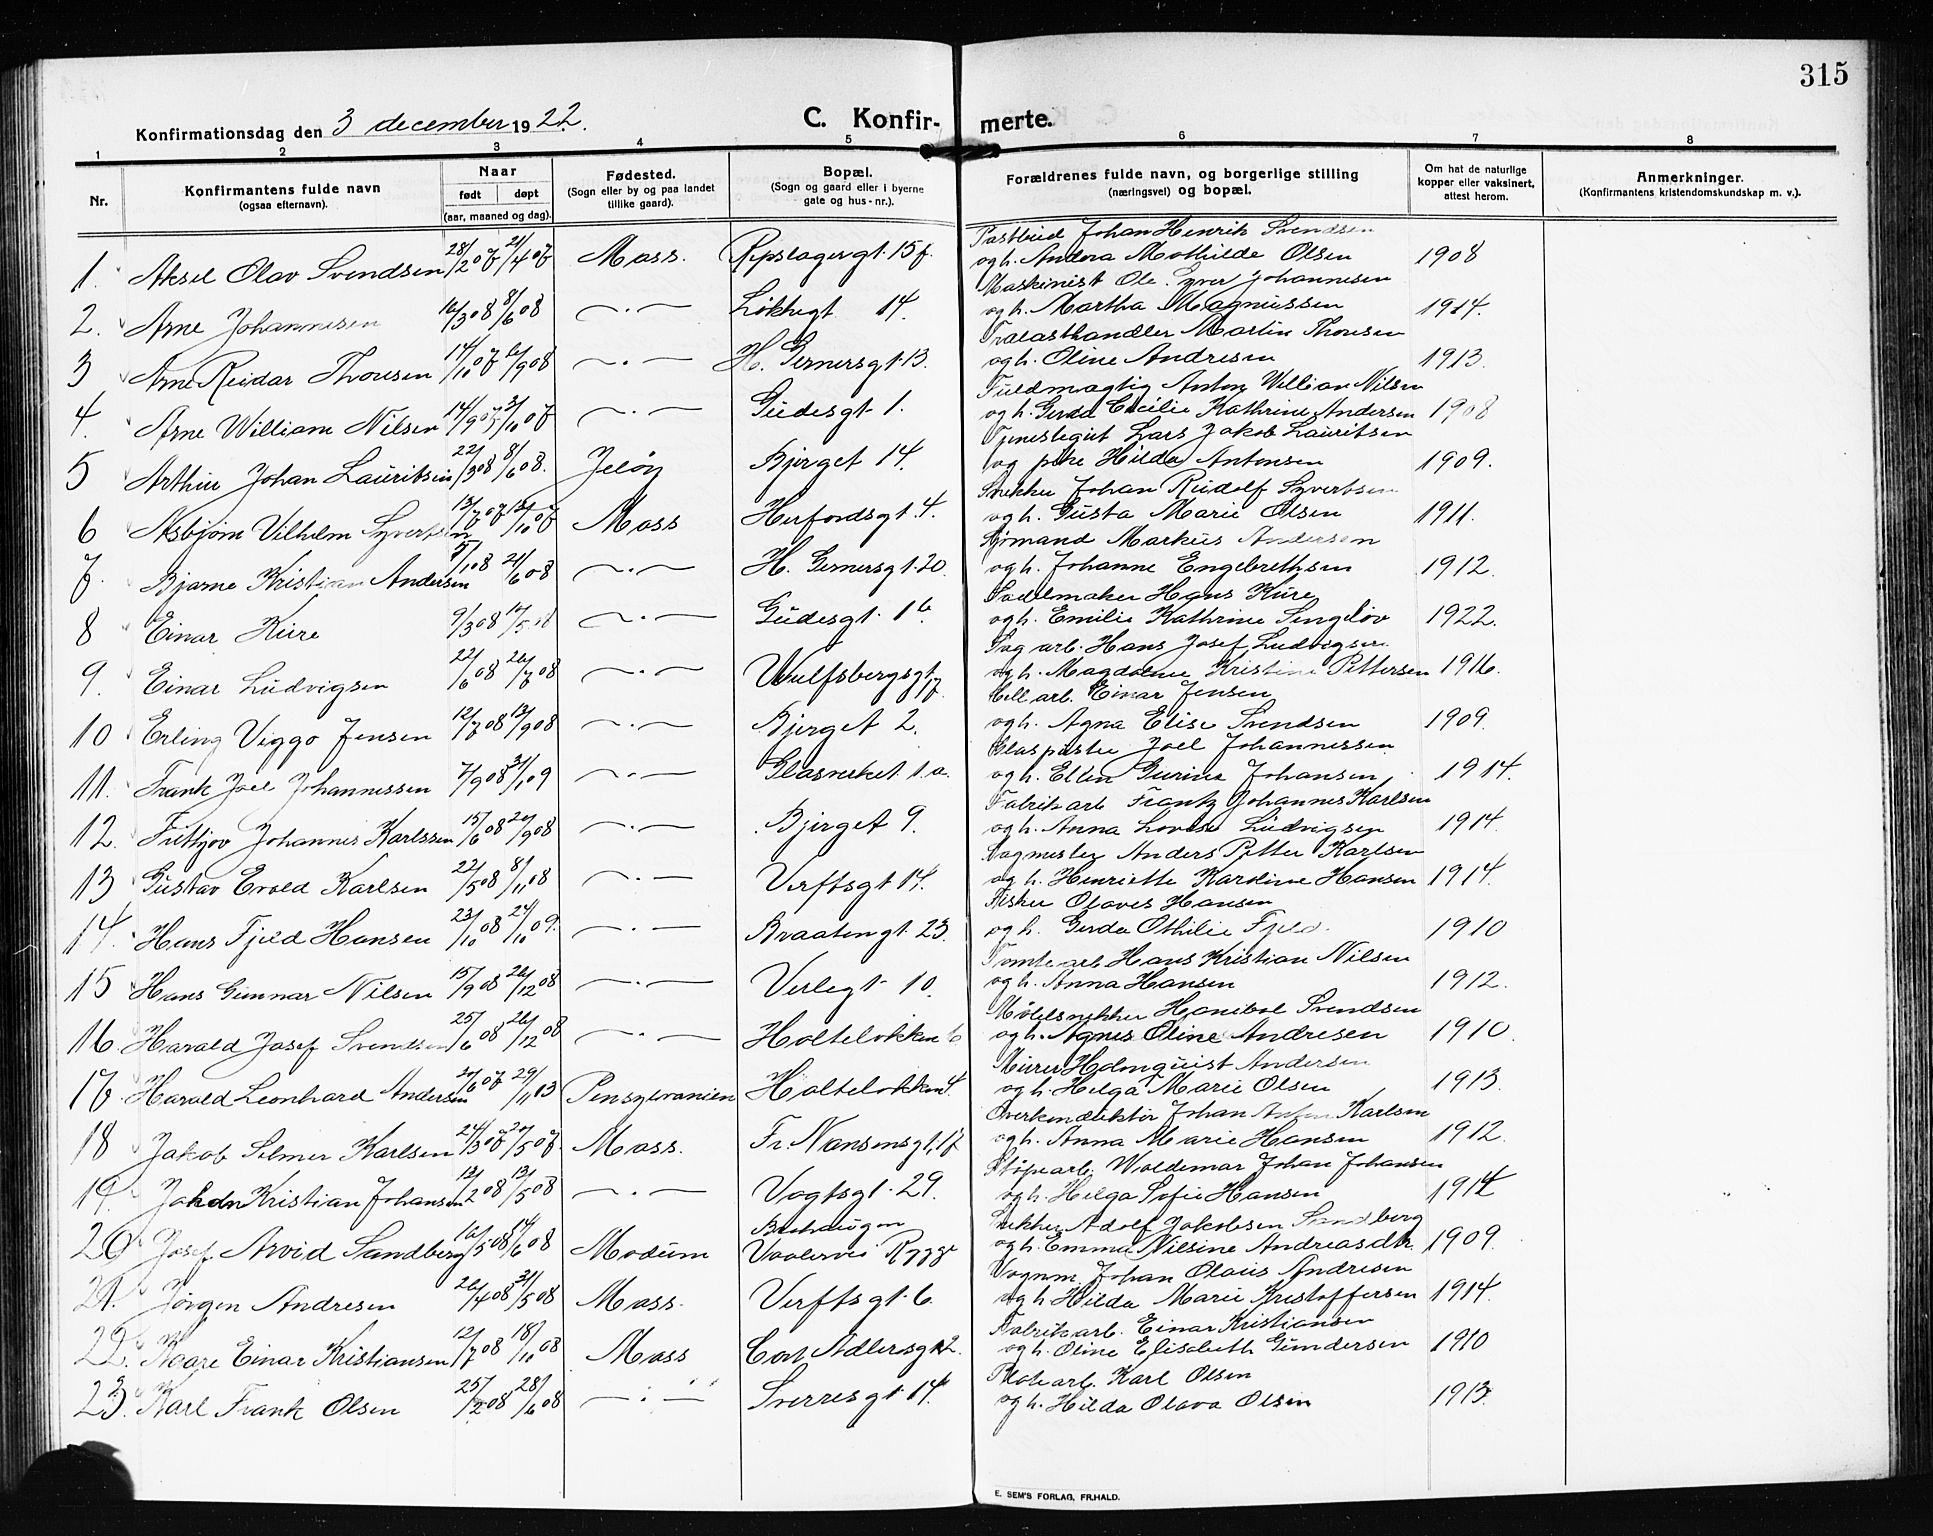 315
Konfirmationsdag den 3 december 1922.
C. Konfirmerte.
1 2 3 4 5 6 7 8
Nr.
Konfirmantens fulde navn (ogsaa efternavn).
Naar født døpt (aar, maaned og dag).
Fødested. (Sogn eller by og paa landet tillike gaard).
Bopæl. (Sogn og gaard eller i byerne gate og hus-nr.).
Forældrenes fulde navn, og borgerlige stilling (næringsvei) og bopæl.
Om hat de naturlige kopper eller vaksinert, attest herom.
Anmerkninger. (Konfirmantens kristendomskundskap m. v.).
Postbud Johan Henrik Svendsen
1. Aksel Olav Svendsen 28/2 07 21/4 07 Moss. Repslagergt. 15 f. og h. Andora Mathilde Olsen 1908
Maskinist Ole Syver Johannesen
2. Arne Johannesen 16/3 08 8/6 08 —.— Løkkegt 14. og h. Martha Magnussen 1914.
Trælasthandler Martin Thoresen
3 Arne Reidar Thoresen 14/10 07 6/9 08 —.— H. Gernersgt. 13. og h. Oline Andresen 1913.
Fuldmægtig Anton William Nilsen
4. Arne William Nilsen 14/9 07 3/10 07 —.— Gudesgt 1. og h. Gerda Cecilie Kathrine Andersen 1908
Tjenestegut Lars Jakob Lauritsen
5 Arthur Johan Lauritsen 22/3 08 8/6 08. Jeløy Bjerget 14. og pike Hilda Antonsen 1909.
Snekker Johan Rudolf Syvertsen
6 Asbjørn Vilhelm Syvertsen 13/7 07 13/10 07 Moss Herfordsgt. 4. og h. Gusta Marie Olsen 1911.
Sjømand Markus Andersen
7. Bjarne Kristian Andersen 5/1 08 21/6 08 —.— H. Gernersgt. 20. og h. Johanne Engebrethsen 1912.
Sadelmaker Hans Kure
8 Einar Kure 9/3 08 17/5 08 —.— Gudesgt. 1 b. og h. Emilie Kathrine Sengeløv 1922.
Sag arb. Hans Josef Ludvigsen
9. Einar Ludvigsen 22/6 08 26/7 08 —.— Wulfsbergsgt. 17. og h. Magdalene Kristine Pettersen 1916.
Cell arb. Einar Jensen
10 Erling Viggo Jensen 12/7 08 13/9 08 —.— Bjerget 2. og h. Agna Elise Svendsen 1909.
Glaspuster Joel Johannessen
11. Frank Joel Johannessen 7/9 08 31/1 09 —.— Glasverket 1 a. og h. Ellen Gurine Johansen 1914.
Fabrik arb Frantz Johannes Karlsen
12. Fritjov Johannes Karlssen 15/6 08 20/9 08 —.— Bjerget 9. og h. Anna Lovise Ludvigsen 1914.
Sagmester Anders Petter Karlsen
13 Gustav Evald Karlsen 22/5 08 8/11 08 —.— Verftsgt 14. og h. Henriette Karoline Hansen 1914.
Fisker Olaves Hansen
14. Hans Fjeld Hansen 23/10 08 24/10 09. —.— Braatengt. 23. og h. Gerda Othilie Fjeld. 1910
Tomtearb Hans Kristian Nilsen
15 Hans Gunnar Nilsen 15/9 08 26/12 08 —.— Verlegt 10. og h. Anna Hansen 1912.
Møbelsnekker Hanibal Svendsen
16. Harald Josef Svendsen 25/6 08 26/12 08 —.— Holteløkken 6 og h. Agnes Oline Andresen 1910.
Murer Holmquist Andersen
17. Harald Leonhard Andersen 27/6 07 29/11 13 Pensylvanien Holteløkken 4. og h. Helga Marie Olsen 1913.
Overkonduktør Johan Anton Karlsen
18 Jakob Selmer Karlsen 24/3 07 20/5 07. Moss. Fr. Nansensgt. 17 og h. Anna Marie Hansen 1912.
Støpearb. Waldemar Johan Johansen
19. Johan Kristian Johansen 12/2 08 13/5 08 —.— Vogtsgt. 29. og h. Helga Sofie Hansen 1914
Snekker Adolf Jakobsen Sandberg
20 Josef Arvid Sandberg 16/5 08 14/6 08 Modum Vaalervei Rygge og h. Emma Nilsine Andreasdtr. 1909.
Vognm. Johan Olaus Andresen
21. Jørgen Andresen 26/4 08 31/5 08 Moss. Verftsgt. 6. og h Hilda Marie Kristoffersen 1914.
Fabrikarb. Einar Kristiansen
22. Kaare Einar Kristiansen 12/7 08 18/10 08 Moss Cort Adlersgt 2. og h. Oline Elisabeth Gundersen 1910
Karl Olsen
23. Karl Frank Olsen 25/2 08 28/6 08 —.— Sverresgt. 14. og h. Hilda Olava Olsen 1913.
E. SEM'S FORLAG, FR.HALD.